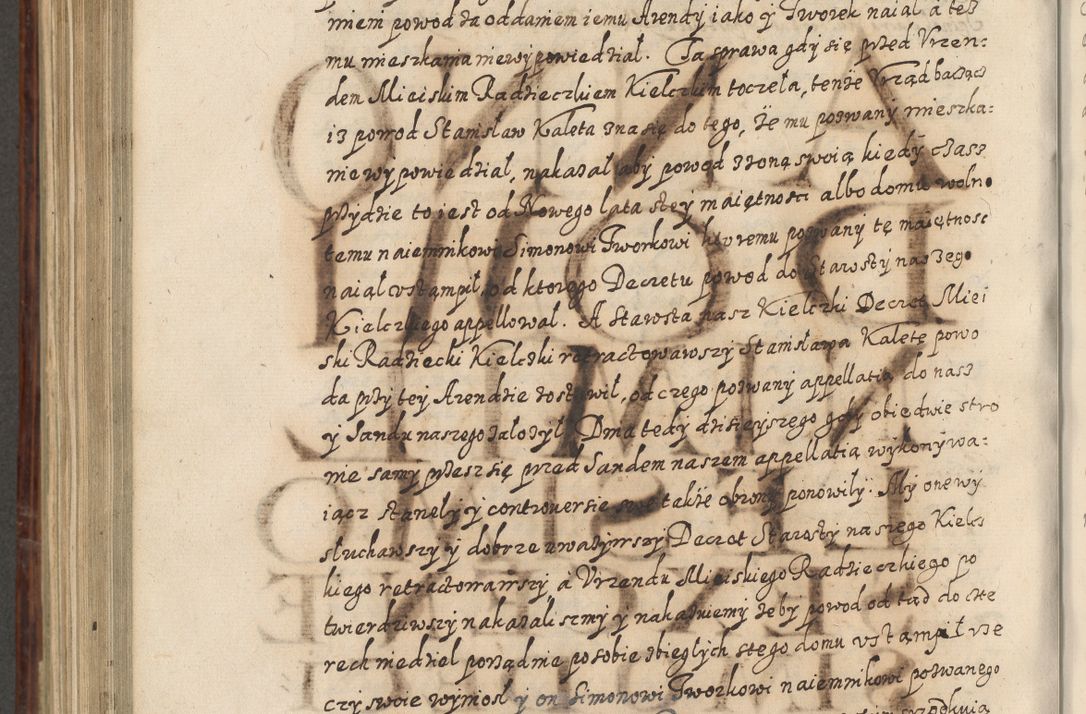 niem powod za oddaniem iemu Arendy iako y Tworek naiął a też
mu mieszkania niewypowiedział. Ta sprawa gdy się przed Vrzen:
dem Mieiskim Radzieczkiem Kielczkim toczeła, tenże Vrząd bacząc
iż powod Stanisław Kaleta zna się do tego, że mu pozwany mieszka:
nie wypowiedział, nakazał aby powod z żoną swoią kiedy czass
przydzie to iest od Nowego lata z tey maiętnosci albo domu wolno
temu naiemnikowi Simonowi Tworkowi ktoremu pozwany tę maiętnosc
naiął wstąmpił, od ktorego Decretu powod do Starosty naszego
Kielczkiego appellował. A Starosta nasz Kielczki Decret Miei
ski Radziecki Kielczki retractowawszy Stanisława Kaletę powo
da przy tey Arendzie zostawił, od czego pozwany appellatią do nasz
y Sandu naszego założył. Dnia tedy dzisieyszego gdy obiedwie stro
nie samy przesz się przed Sandem naszem appellatią wykonywa:
iącz stanęły y controuersie swe także obrony ponowiły. My one wy
słuchawszy y dobrze uważywszy Decret Starosty naszego Kielcz
kiego retractowawszy a Vrzendu Mieiskiego Radzieczkiego po
twierdziwszy nakazaliszmy y nakazuiemy żeby powod od tąd do czte
rech niedziel porządnie po sobie zbiegłych z tego domu wstąmpił rze
czy swoie wyniosł y on Simonowi Tworkowi naiemnikowi pozwanego